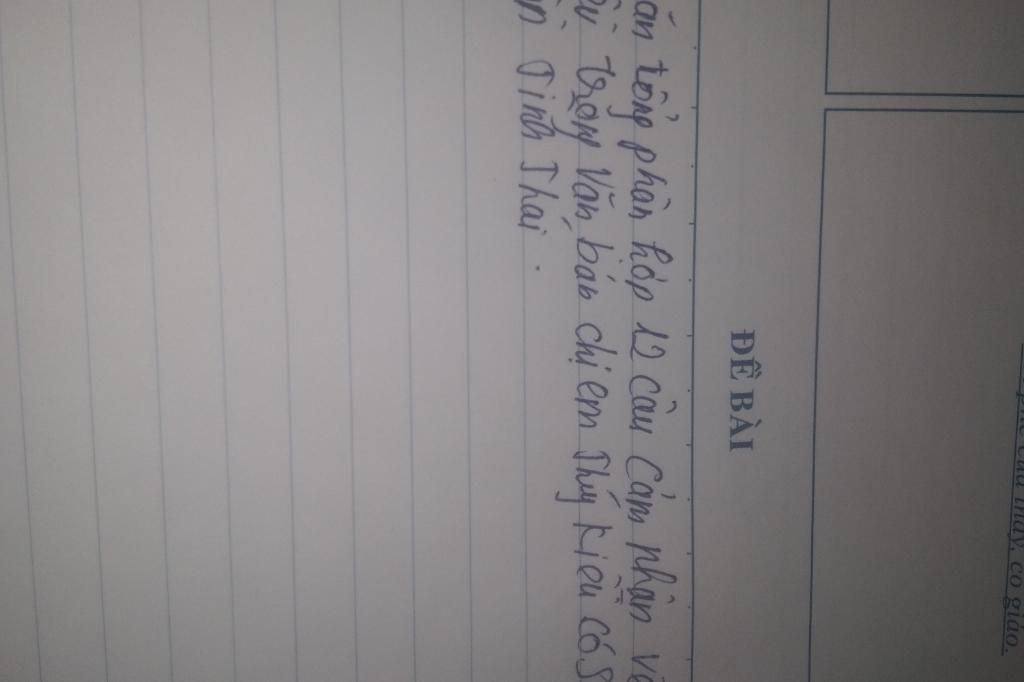 của thầy, cô giáo.
ĐỀ BÀI
tổng phân hợp 12 câu Cảm nhận về
trong Văn bản chị em Thúy Kiều có
Tình Thái.